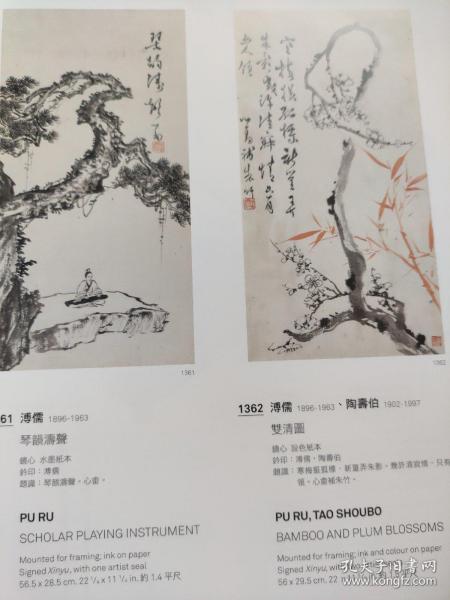 琴韻濤聲 心畬
1361
61 溥儒 1896-1963
琴韻濤聲
鏡心 水墨紙本
鈐印：溥儒
題識：琴韻濤聲。心畬。
PU RU
SCHOLAR PLAYING INSTRUMENT
Mounted for framing; ink on paper
Signed Xinyu, with one artist seal
56.5 x 28.5 cm. 22 1/4 x 11 1/4 in. 約 1.4 平尺
1362
1362 溥儒 1896-1963、陶壽伯 1902-1997
雙清圖
鏡心 設色紙本
鈐印：溥儒、陶壽伯
題識：寒梅挺孤標，新篁弄朱影。幾許清寂情，只有
領。心畬補朱竹。
PU RU, TAO SHOUBO
BAMBOO AND PLUM BLOSSOMS
Mounted for framing; ink and colour on paper
Signed Xinyu, with
56 x 29.5 cm. 22
孔夫子旧书网